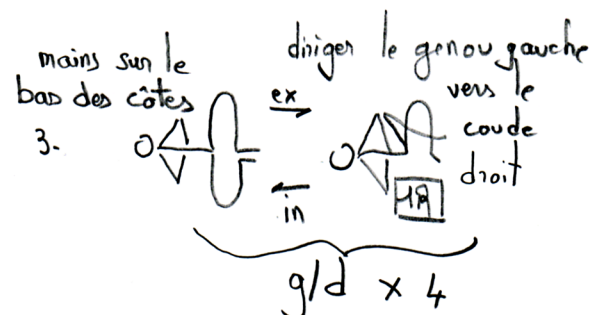 mains sur le
bas des côtes
diriger le genou gauche
vers le
coude
droit
3.
ex
in
g/d x 4